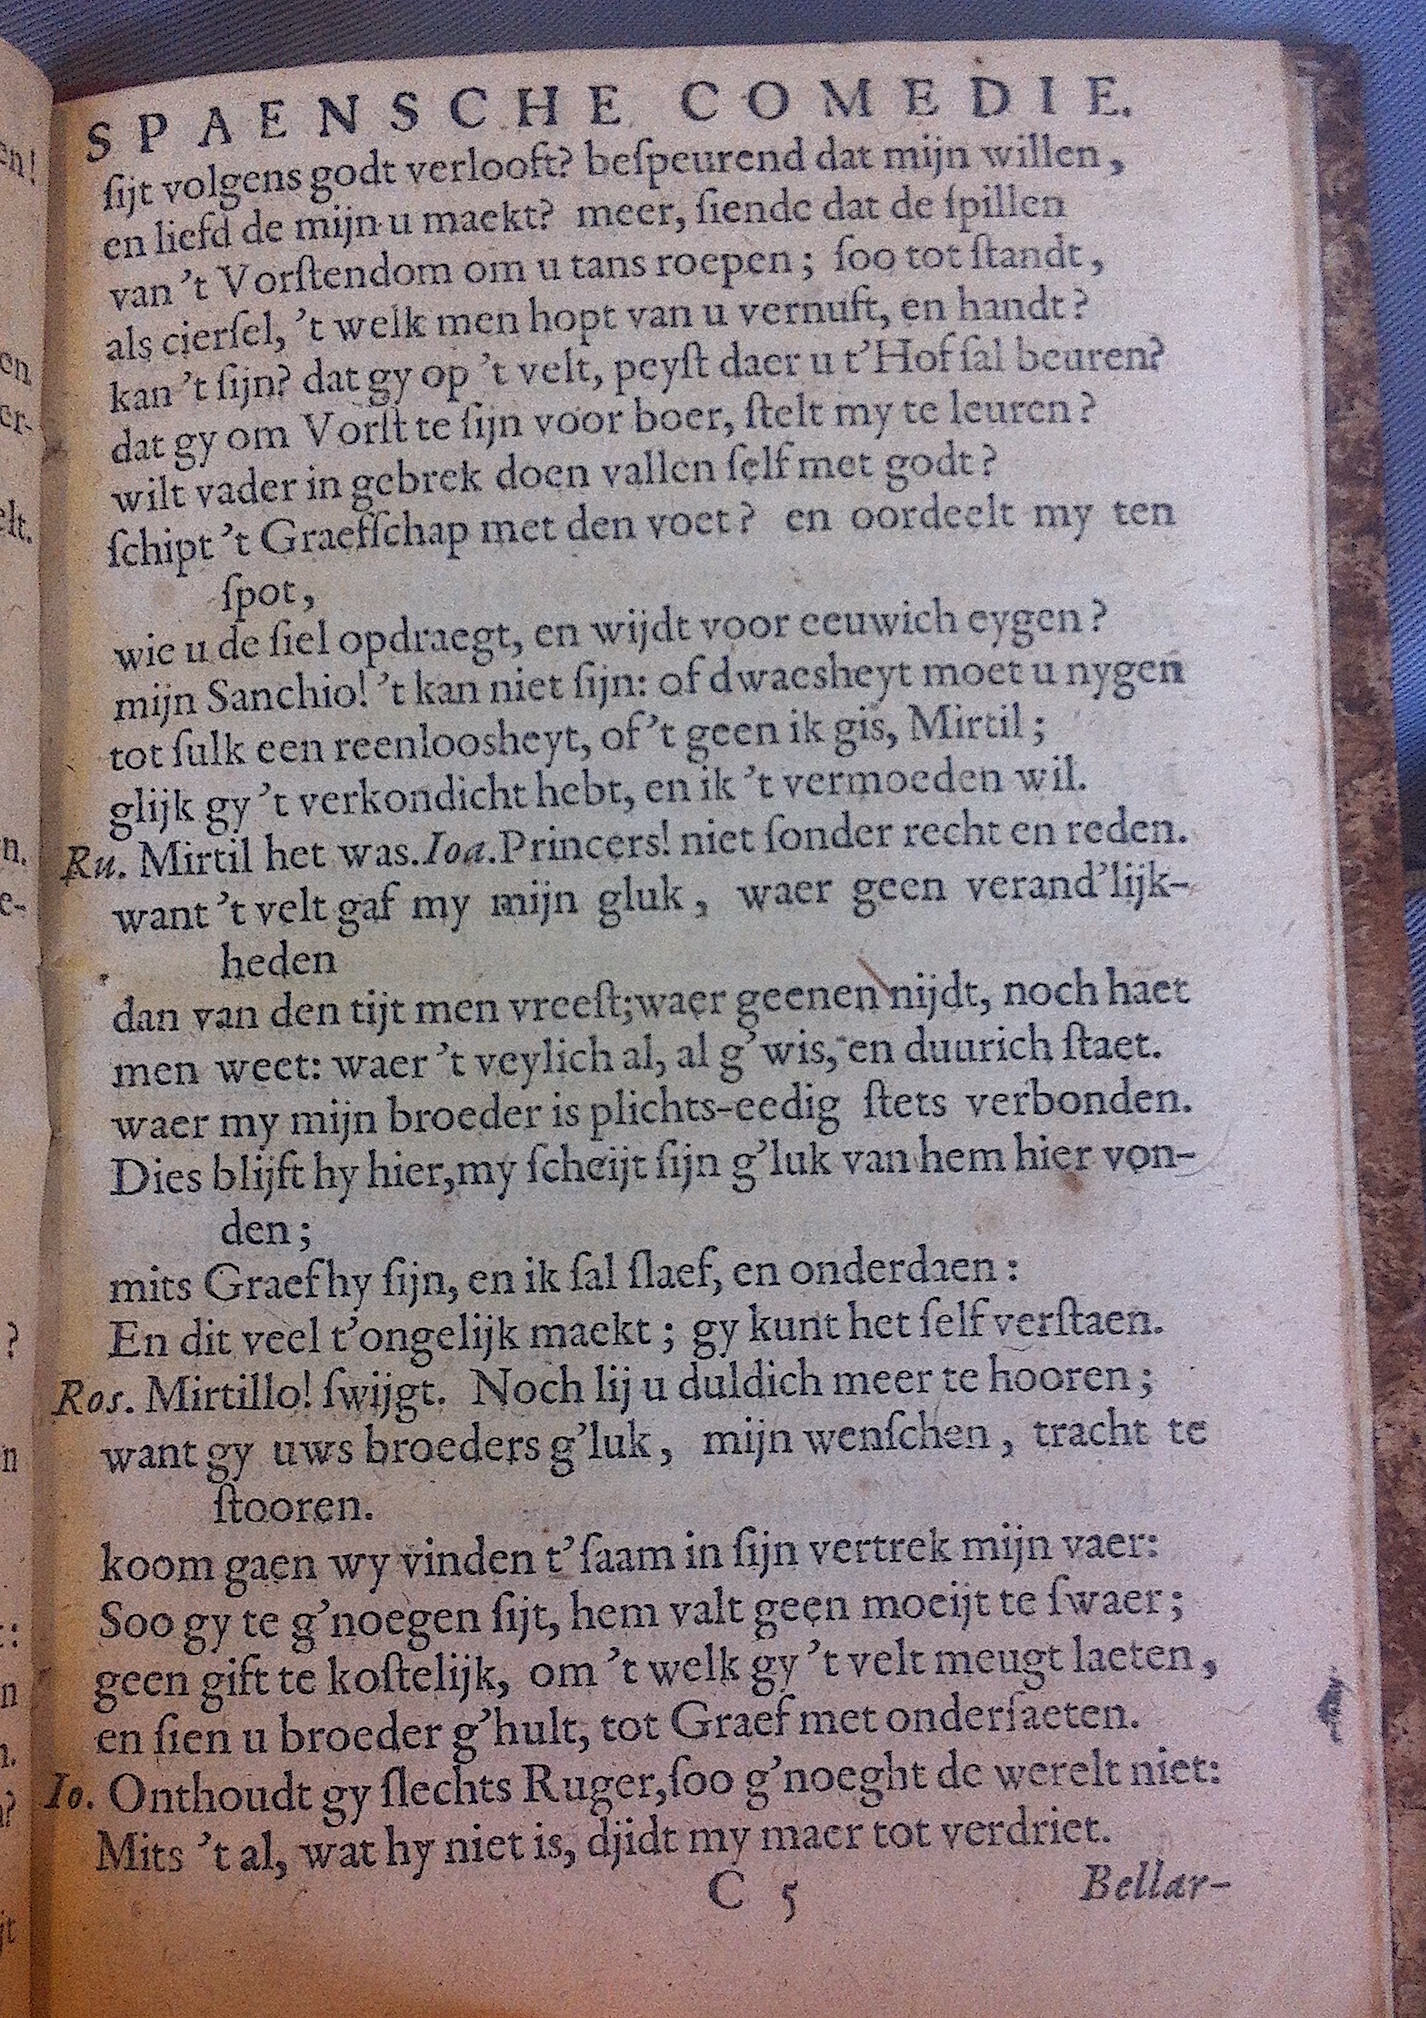 SPAENSCHE COMEDIE.
ſijt volgens godt verlooft? beſpeurend dat mijn willen,
en liefd de mijn u maekt? meer, ſiende dat de ſpillen
van 't Vorſtendom om u tans roepen; ſoo tot ſtandt,
als cierſel, 't welk men hopt van u vernuft, en handt?
kan 't ſijn? dat gy op 't velt, peyſt daer u t'Hof ſal beuren?
dat gy om Vorſt te ſijn voor boer, ſtelt my te leuren?
wilt vader in gebrek doen vallen ſelf met godt?
ſchipt 't Graefſchap met den voet? en oordeelt my ten
ſpot,
wie u de ſiel opdraegt, en wijdt voor eeuwich eygen?
mijn Sanchio! 't kan niet ſijn: of dwaesheyt moet u nygen
tot ſulk een reenloosheyt, of 't geen ik gis, Mirtil;
glijk gy 't verkondicht hebt, en ik 't vermoeden wil.
Ru. Mirtil het was. Ioa. Princers! niet ſonder recht en reden.
want 't velt gaf my mijn gluk, waer geen verand'lijk-
heden
dan van den tijt men vreeſt; waer geenen nijdt, noch haet
men weet: waer 't veylich al, al g'wis, en duurich ſtaet.
waer my mijn broeder is plichts-eedig ſtets verbonden.
Dies blijft hy hier, my ſcheijt ſijn g'luk van hem hier von-
den;
mits Graef hy ſijn, en ik ſal ſlaef, en onderdaen:
En dit veel t'ongelijk maekt; gy kunt het ſelf verſtaen.
Ros. Mirtillo! ſwijgt. Noch lij u duldich meer te hooren;
want gy uws broeders g'luk, mijn wenſchen, tracht te
ſtooren.
koom gaen wy vinden t'ſaam in ſijn vertrek mijn vaer:
Soo gy te g'noegen ſijt, hem valt geen moeijt te ſwaer;
geen gift te koſtelijk, om 't welk gy 't velt meugt laeten,
en ſien u broeder g'hult, tot Graef met onderſaeten.
Io. Onthoudt gy ſlechts Ruger, ſoo g'noeght de werelt niet:
Mits 't al, wat hy niet is, djidt my maer tot verdriet.
C 5
Bellar-